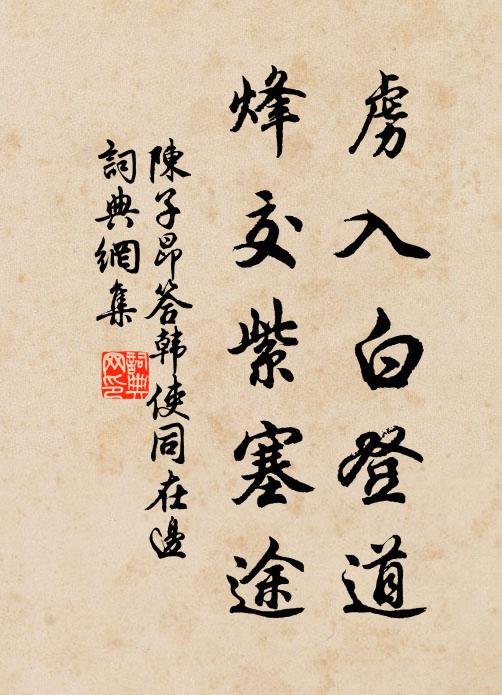 虜入白登道
烽交紫塞途
陳子昂答韓使同在邊
詞典網集
詞典网印